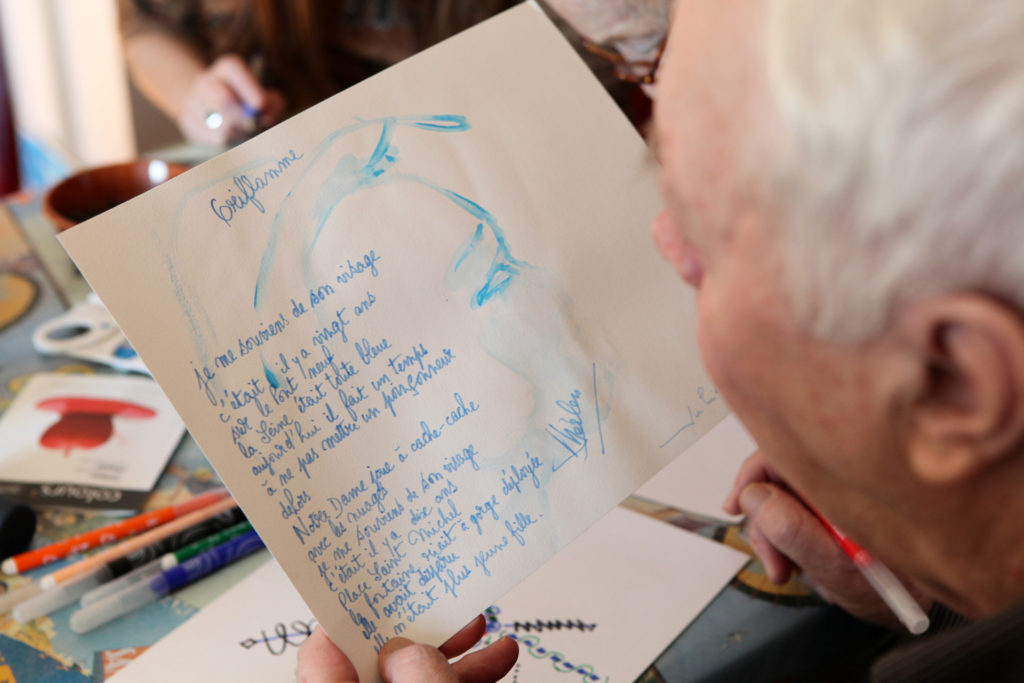 Oriflamme
je me souviens de son visage
c'était il y a vingt ans
sur le Pont neuf
la Seine était toute bleue
aujourd'hui il fait un temps
à ne pas mettre un poinçonneur
dehors
Notre Dame joue à cache-cache
avec les nuages
je me souviens de son visage
c'était il y a dix ans
Place Saint Michel
la fontaine riait à gorge déployée
elle avait disparu
elle n'était plus jeune fille.
colours